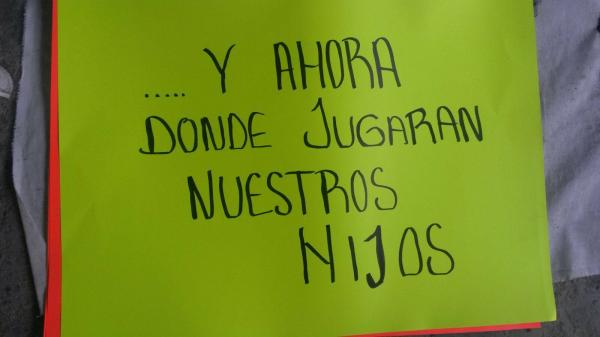 ..... Y AHORA
DONDE JUGARAN
NUESTROS
HIJOS